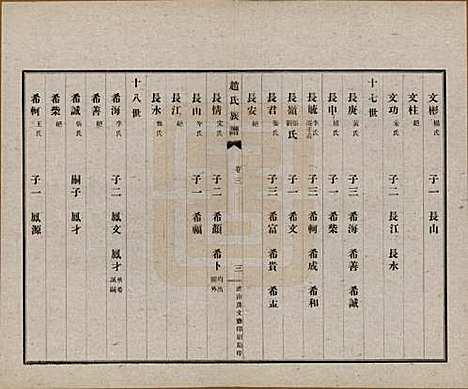 文彬 楊氏 子一 長山
文柱 絕
文功 朱氏 子二 長江 長水
十七世
長庚 黃氏 子三 希海 希善 希誠
長申 子一 希柴
長毓 李氏 子三 希柯 希成 希和
長嶺 氏 子一 希文
長君 子三 希富 希貴 希孟
長安 絕
趙氏族譜 卷三 三
長情 宋氏 子二 希顏 希卜
長山 子一 希福
長江 絕
長水
十八世
希海 李氏 子二 鳳文 鳳才 承希誠嗣
希善 絕
希誠 嗣子 鳳才
希柴 絕
希柯 王氏 子一 鳳源